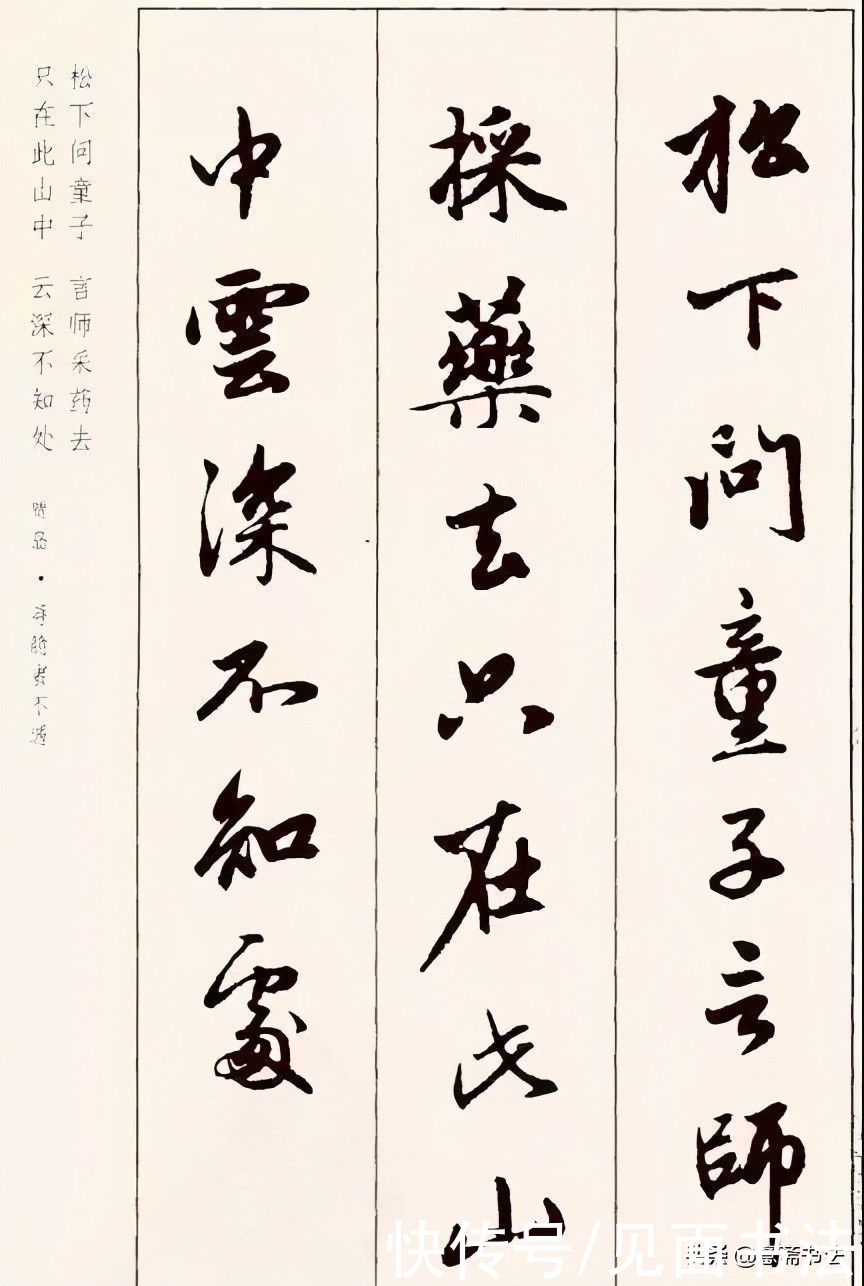 松下问童子言師
採藥去只在此山
中雲深不知處
松下问童子 言师采药去
只在此山中 云深不知处
贾岛·寻隐者不遇
快传号/见面书法
头条@尋斋书法